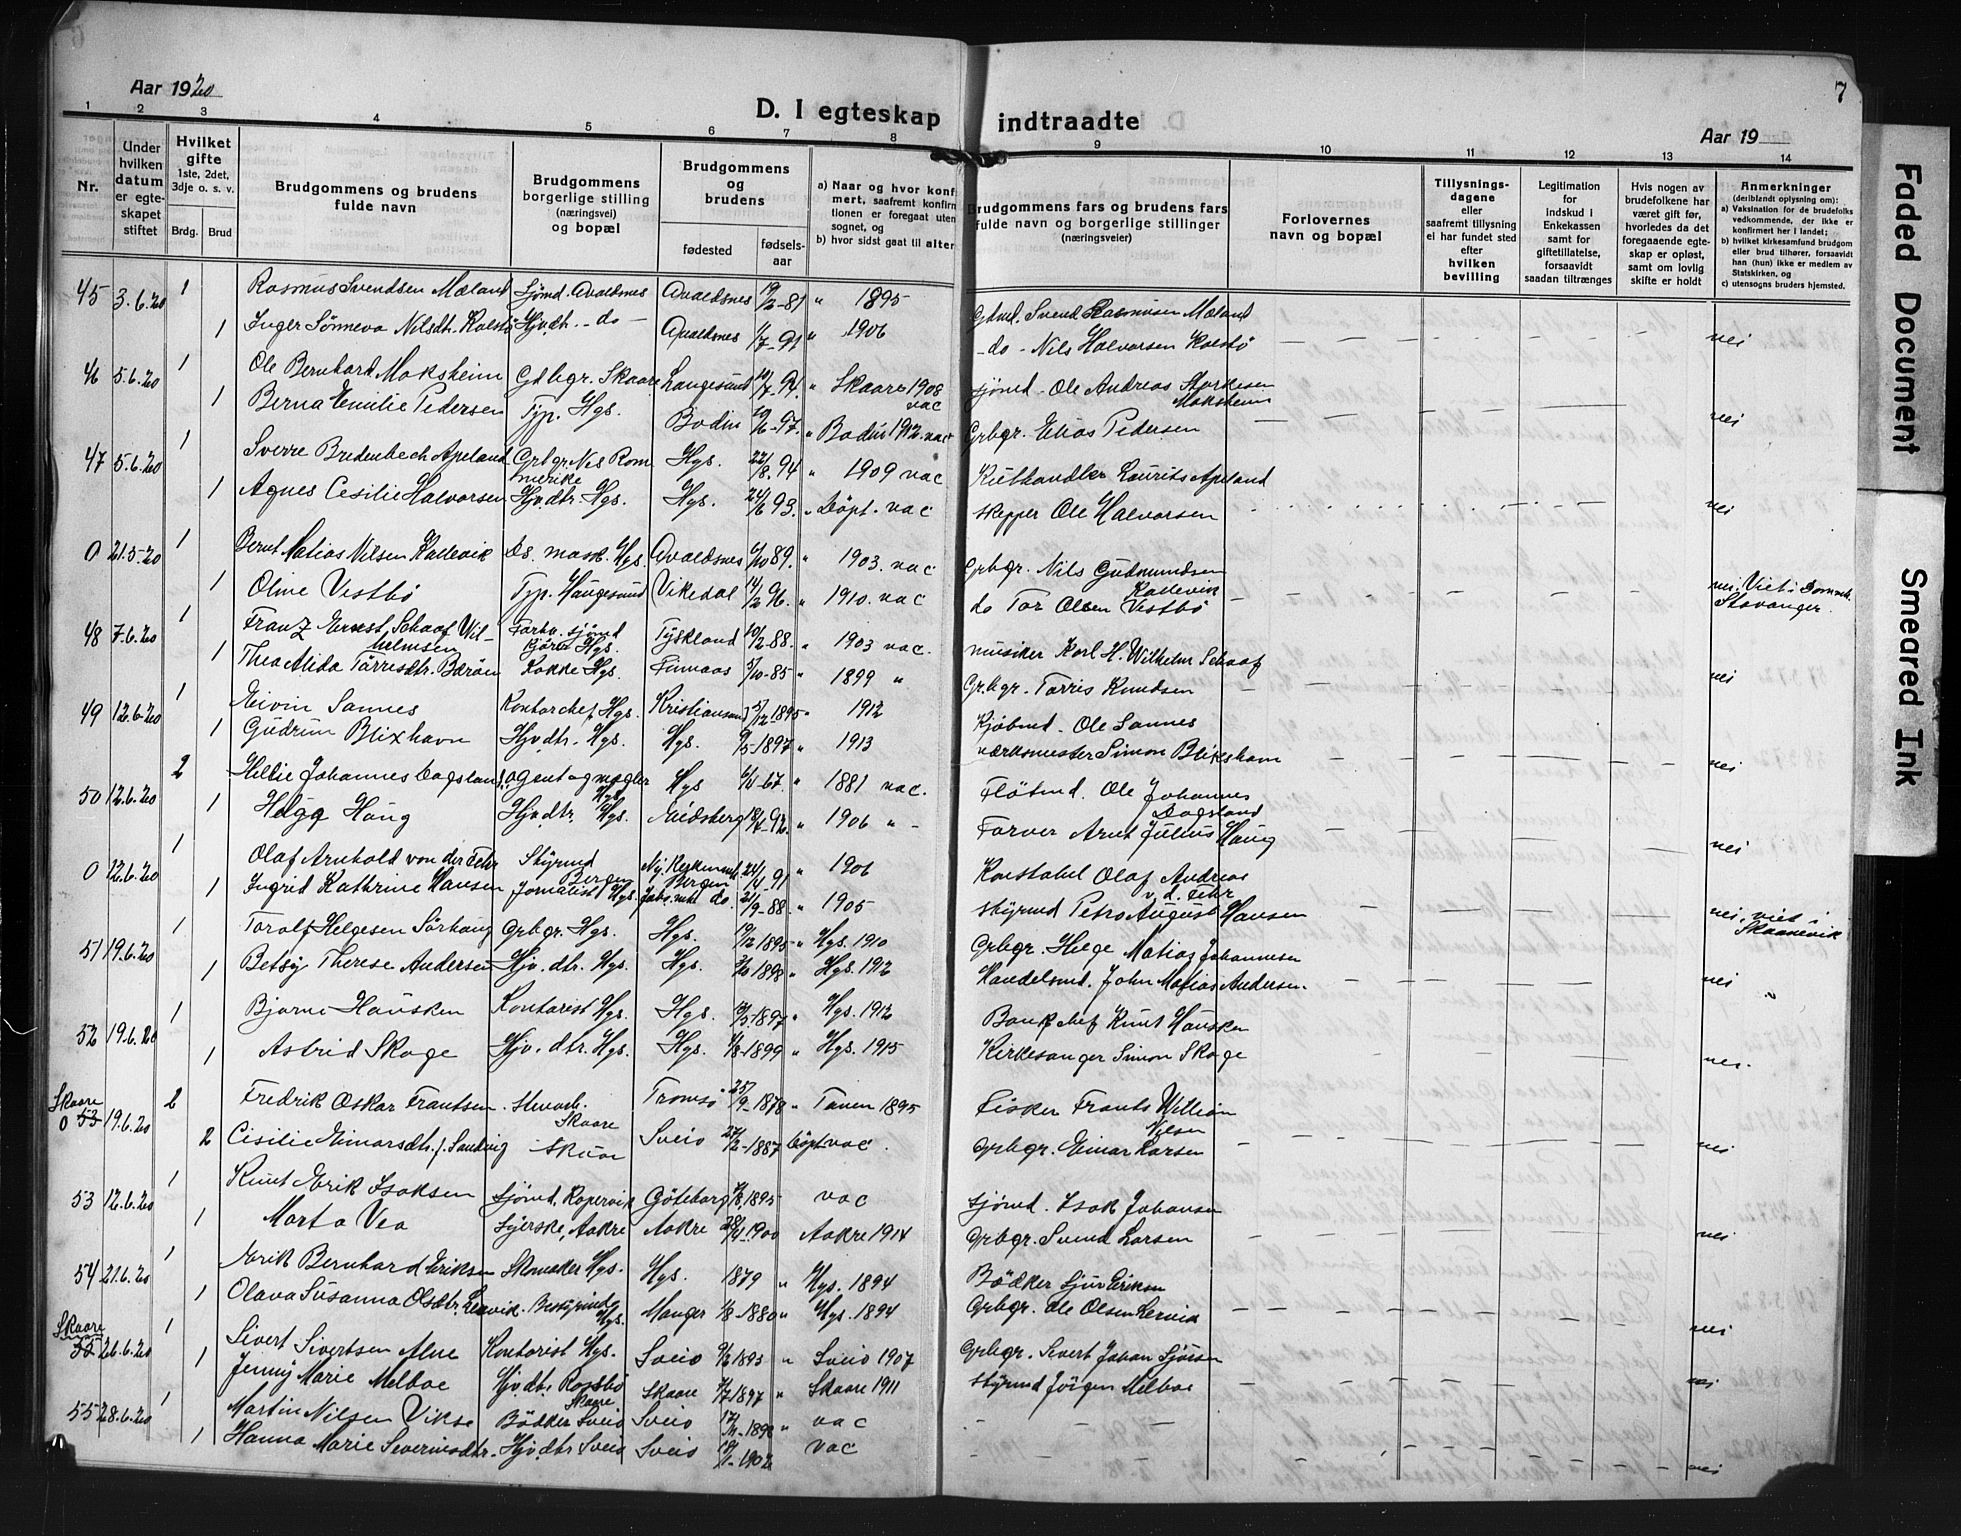 Aar 1920
D. I egteskap indtraadte
7
Aar 19
1 2 3 4 5 6 7 8 9 10 11 12 13 14
Nr.
Under hvilken datum er egteskapet stiftet
Hvilket gifte 1ste, 2det, 3dje o. s. v.
Brdg. Brud
Brudgommens og brudens fulde navn
Brudgommens borgerlige stilling (næringsvei) og bopæl
Brudgommens og brudens
fødested fødselsaar
a) Naar og hvor konfirmert, saafremt konfirmtionen er foregaat uten sognet, og
b) hvor sidst gaat til alters
Brudgommens fars og brudens fars fulde navn og borgerlige stillinger (næringsveier)
Forlovernes navn og bopæl
Tillysningsdagene eller saafremt tillysning ei har fundet sted efter hvilken bevilling
Legitimation for indskud i Enkekassen samt for giftetillatelse, forsaavidt saadan tiltrænges
Hvis nogen av brudefolkene har været gift før, hvorledes da det foregaaende egteskap er opløst, samt om lovlig skifte er holdt
Anmerkninger (deriblandt oplysning om):
a) Vaksination for de brudefolks vedkommende, der ikke er konfirmert her i landet;
b) hvilket kirkesamfund brudgom eller brud tilhører, forsaavidt han (hun) ikke er medlem av Statskirken, og
c) utensogns bruders hjemsted.
45 3.6.20 1 Rasmus Svendsen Mæland Sjömd. Avaldsnes Avaldsnes 19/2-81 " 1895 Gdmd. Svend Rasmusen Mæland
1 Inger Sönneva Nilsdtr. Kolstö Hjvdtr. - do - Avaldsnes 1/7-91 " 1906 - do - Nils Halvorsen Kolstö nei
46 5.6.20 1 Ole Bernhard Moksheim Gdbgr. Skaare Langesund /7-91. " Skaare 1908 vac Sjömd. Ole Andreas Storkesen Moksheim
1 Berna Emilie Pedersen Typ. Hgs. Bodin /6-97. " Bodin 1912. vac Grbgr. Elias Pedersen nei
47 5.6.20 1 Sverre Bredenbech Apeland Grbgr Nes Rommerike Hgs. 22/8.94 " 1909 vac Kulhandler Laurits Apeland
1 Agnes Cesilie Halvorsen Hjvdtr. Hgs. Hgs. 24/6 93. " Döpt. vac Skepper Ole Halvorsen nei
0 21.5.20 1 Bernt Matias Nilsen Kallevik Ds. mask. Hgs. Avaldsnes 6/10 89. " 1903. vac Grbgr. Nils Gudmundsen Kallevik
1 Oline Vestbö Typ. Haugesund Vikedal 14/2 96. " 1910. vac do Tor Olsen Vestbö nei, Viet i Domk. Stavanger.
48 7.6.20 1 Franz Ernst Schaaf Wilhelmsen Forhv. sjömd Hgs. Tyskland 10/2-88. " 1903 vac. musiker Karl H. Wilhelm Schaaf
1 Thea Alida Törresdtr. Baröen Kokke Hgs. Finnaas 5/10-85 " 1899 " Gr.bgr. Torris Knudsen nei
49 12.6.20 1 Eivin Sannes Kontorchef Hgs. Kristiansand 5/12 1895 " 1912 Kjöbmd. Ole Sannes
1 Gudrun Blixhavn Hjvdtr. Hgs. Hgs. /5-1897 " 1913 værksmester Simon Blikshavn nei
50 12.6.20 2 Hellie Johannes Dagsland agent og megler Hgs. Hgs 6/4-67 " 1881 vac. Flötmd. Ole Johannes Dagsland
1 Helga Haug Hjvdtr. Hgs. Eidsberg 18/4-92. " 1906 " - Farver Arnt Julius Haug nei
0 12.6.20 1 Olaf Arnhold von der Fehr Styrmd Bergen Ny. Kirkemnh. Bergen 24/4-91 " 1906 Konstabel Olaf Andreas v.d. Fehr
1 Ingrid Kathrine Hansen Jornalist Hgs. do. 21/9-88. " 1905 Styrmd Petro August Hansen nei, viet i Skaanevik
51 19.6.20 1 Torolf Helgesen Sörhaug Grbgr. Hgs. Hgs. 19/12 1895 " Hgs. 1910 Grbgr. Helge Matias Johannesen
1 Betsy Therese Andersen Hjv. dtr. Hgs. Hgs. /10 1898 " Hgs. 1912 Handelsmd. John Matias Andersen. nei
52 19.6.20 1 Bjarne Hausken Kontorist Hgs. Hgs. /5-1897 " Hgs. 1912 Bankchef Knut Hausken
1 Astrid Skage Hjv. dtr. Hgs. Hgs. /8-1899 " Hgs. 1915 Kirkesanger Simon Skage nei.
Skaare 0 53 19.6.20 2 Fredrik Oskar Frantsen. Skaare Tromsö 25/9-1878 " Tanen 1895 Fisker Frants William Nilsen
2 Cisilie Einarsdtr. f. Sandvig Skaar Sveio 27/2-1887 Döpt vac. Grbgr. Einar Larsen nei
53 12.6.20 1 Knut Erik Isaksen Sjömd. Kopervik Göteborg /8 1895 vac Sjömd. Isak Johansen
1 Marta Vea Syerske, Aakre Aakre 28/4 1900 Aakre 1914 Grbgr. Svend Larsen nei
54 21.6.20 1 Erik Bernhard Eriksen Skomaker Hgs. Hgs. 1879 " Hgs. 1894 Bödker Sjur Eriksen
1 Olava Susanna Olsdtr. Lervik. Hgs. Manger 1/8-1880 " Hgs. 1894 Grbgr. Ole Olsen Lervik nei
Skaare 55 26.6.20 1 Sivert Sivertsen Alne Kontorist Hgs. Sveio 9/2 1893 " Sveio 1907 Grbgr. Severt Johan Sjursen
1 Jenny Marie Melboe Hjvdtr. Rossebö Skaare Skaare /7 1897 " Skaare 1911 Styrmd Jörgen Melboe nei
55 28.6.20 1 Martin Nilsen Vikse Bödker Sveio Sveio 17/11-1898 " vac
1 Hanna Marie Severinsdtr. Hjvdtr Sveio Sveio 19/1-1902 vac nei
Faded Document
Smeared Ink